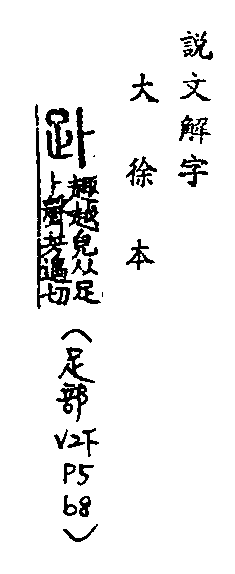 說文解字
大徐本
趣越皃从足
卜聲芳遇切
（足部V2下P5b8）